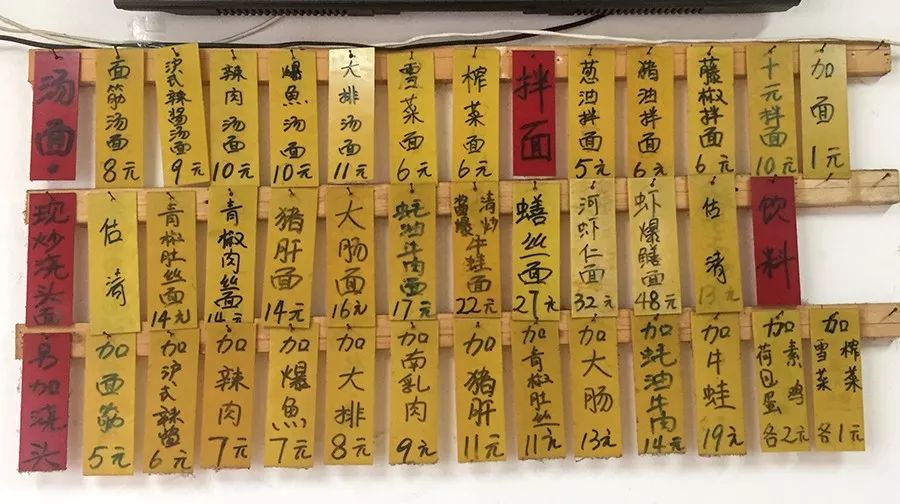 汤面
面筋汤面 8元
沪式辣酱汤面 9元
辣肉汤面 10元
爆魚汤面 10元
大排汤面 11元
雪菜面 6元
榨菜面 6元
拌面
葱油拌面 5元
猪油拌面 6元
藤椒拌面 6元
十元拌面 10元
加面 1元
现炒浇头面
估清
青椒肚丝面 14元
青椒肉丝面 14元
猪肝面 14元
大肠面 16元
蚝油牛肉面 17元
酱爆 清炒 牛蛙面 22元
鳝丝面 27元
河虾仁面 32元
虾爆鳝面 48元
估清 13元
饮料
另加浇头
加面筋 5元
加沪式辣酱 6元
加辣肉 7元
加爆魚 7元
加大排 8元
加南乳肉 9元
加猪肝 11元
加青椒肚丝 11元
加大肠 13元
加蚝油牛肉 14元
加牛蛙 19元
加素鸡 荷包蛋 各2元
加榨菜 雪菜 各1元